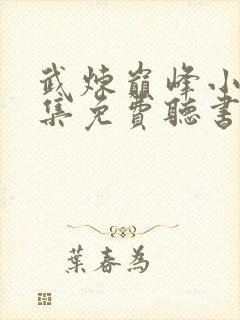 武煉巔峰小
集免費聽書
葉春為